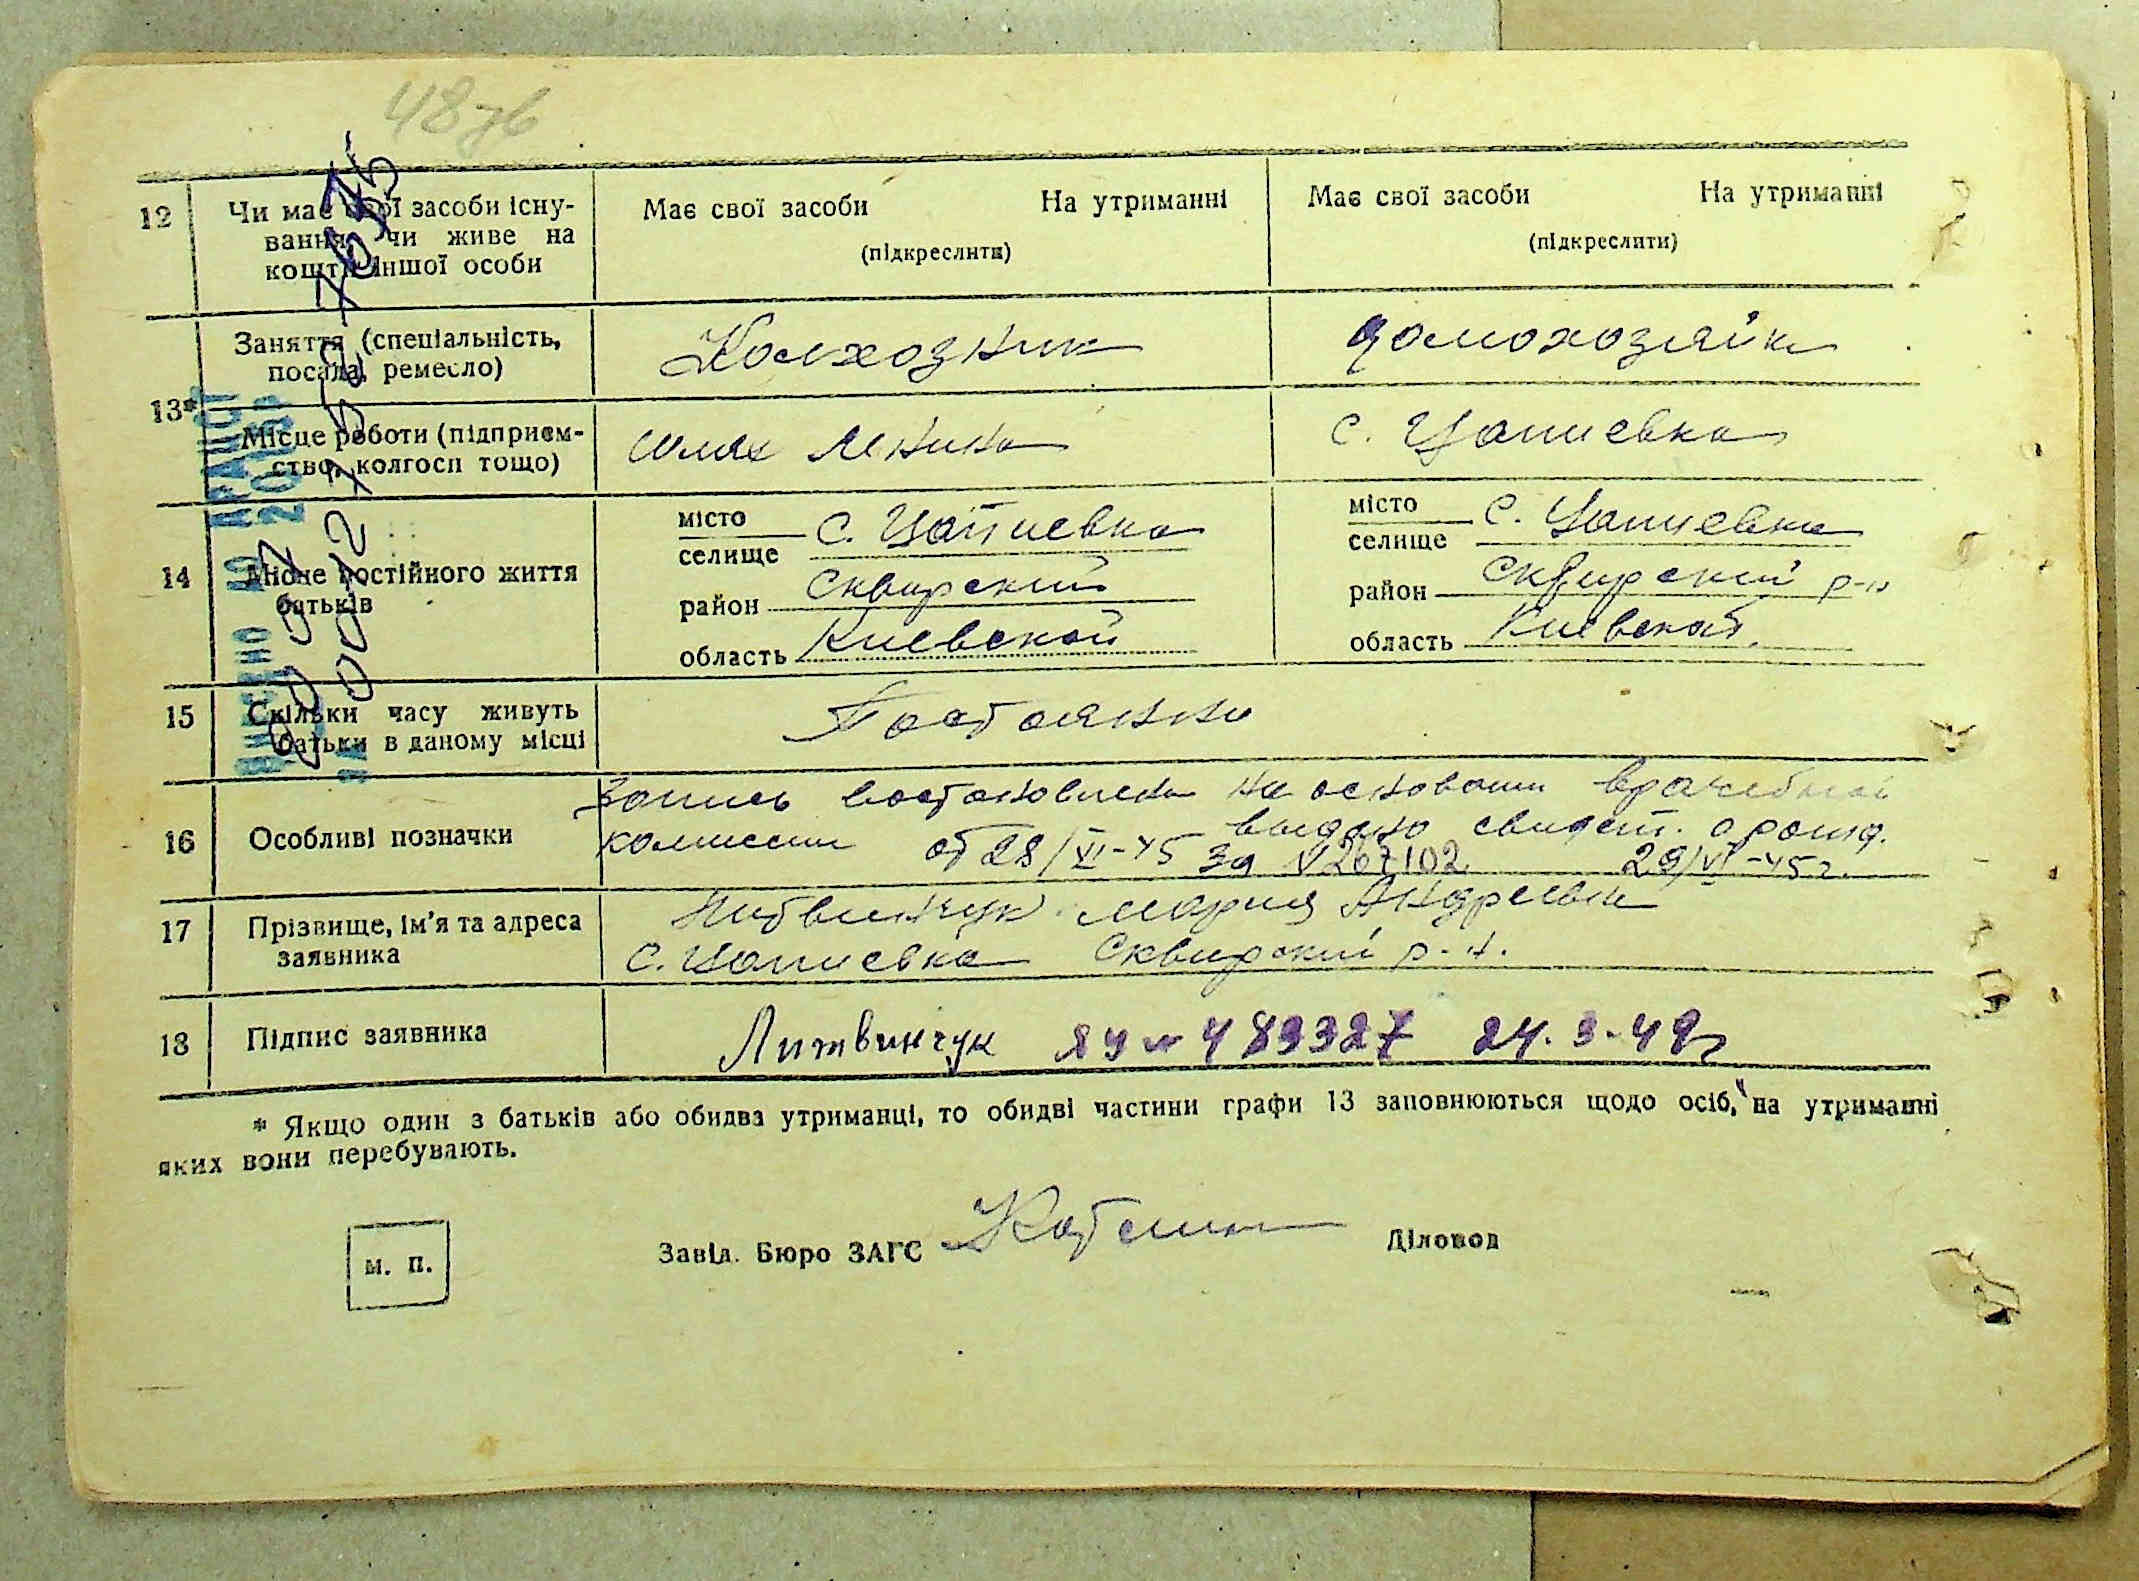 48зв
12 Чи має свої засоби існу- Має свої засоби На утриманні Має свої засоби На утриманні
вання чи живе на (підкреслити) (підкреслити)
кошти іншої особи
13*
Заняття (спеціальність, Колхозник домохозяйка
посада, ремесло)
Місце роботи (підприєм- шлях Ленина с. Цапиевка
ство, колгосп тощо)
14 Місце постійного життя
батьків
місто с. Цапиевка місто с. Цапиевка
селище селище
район Сквирский район Сквирский р-н
область Киевской область Киевской
15 Скільки часу живуть Постоянно
батьки в даному місці
16 Особливі позначки
Запись востановлена на основани врачебной
комиссии от 28/VI-45 выдано свидет. о рожд.
за № 267102 29/VI-45г.
17 Прізвище, ім'я та адреса Литвинчук Мария Андреевна
заявника с. Цапиевка Сквирский р-н.
18 Підпис заявника Литвинчук ЯУ № 483327 24.3-49г
* Якщо один з батьків або обидва утриманці, то обидві частини графи 13 заповнюються щодо осіб, на утриманні
яких вони перебувають.
м. п. Завід. Бюро ЗАГС Діловод